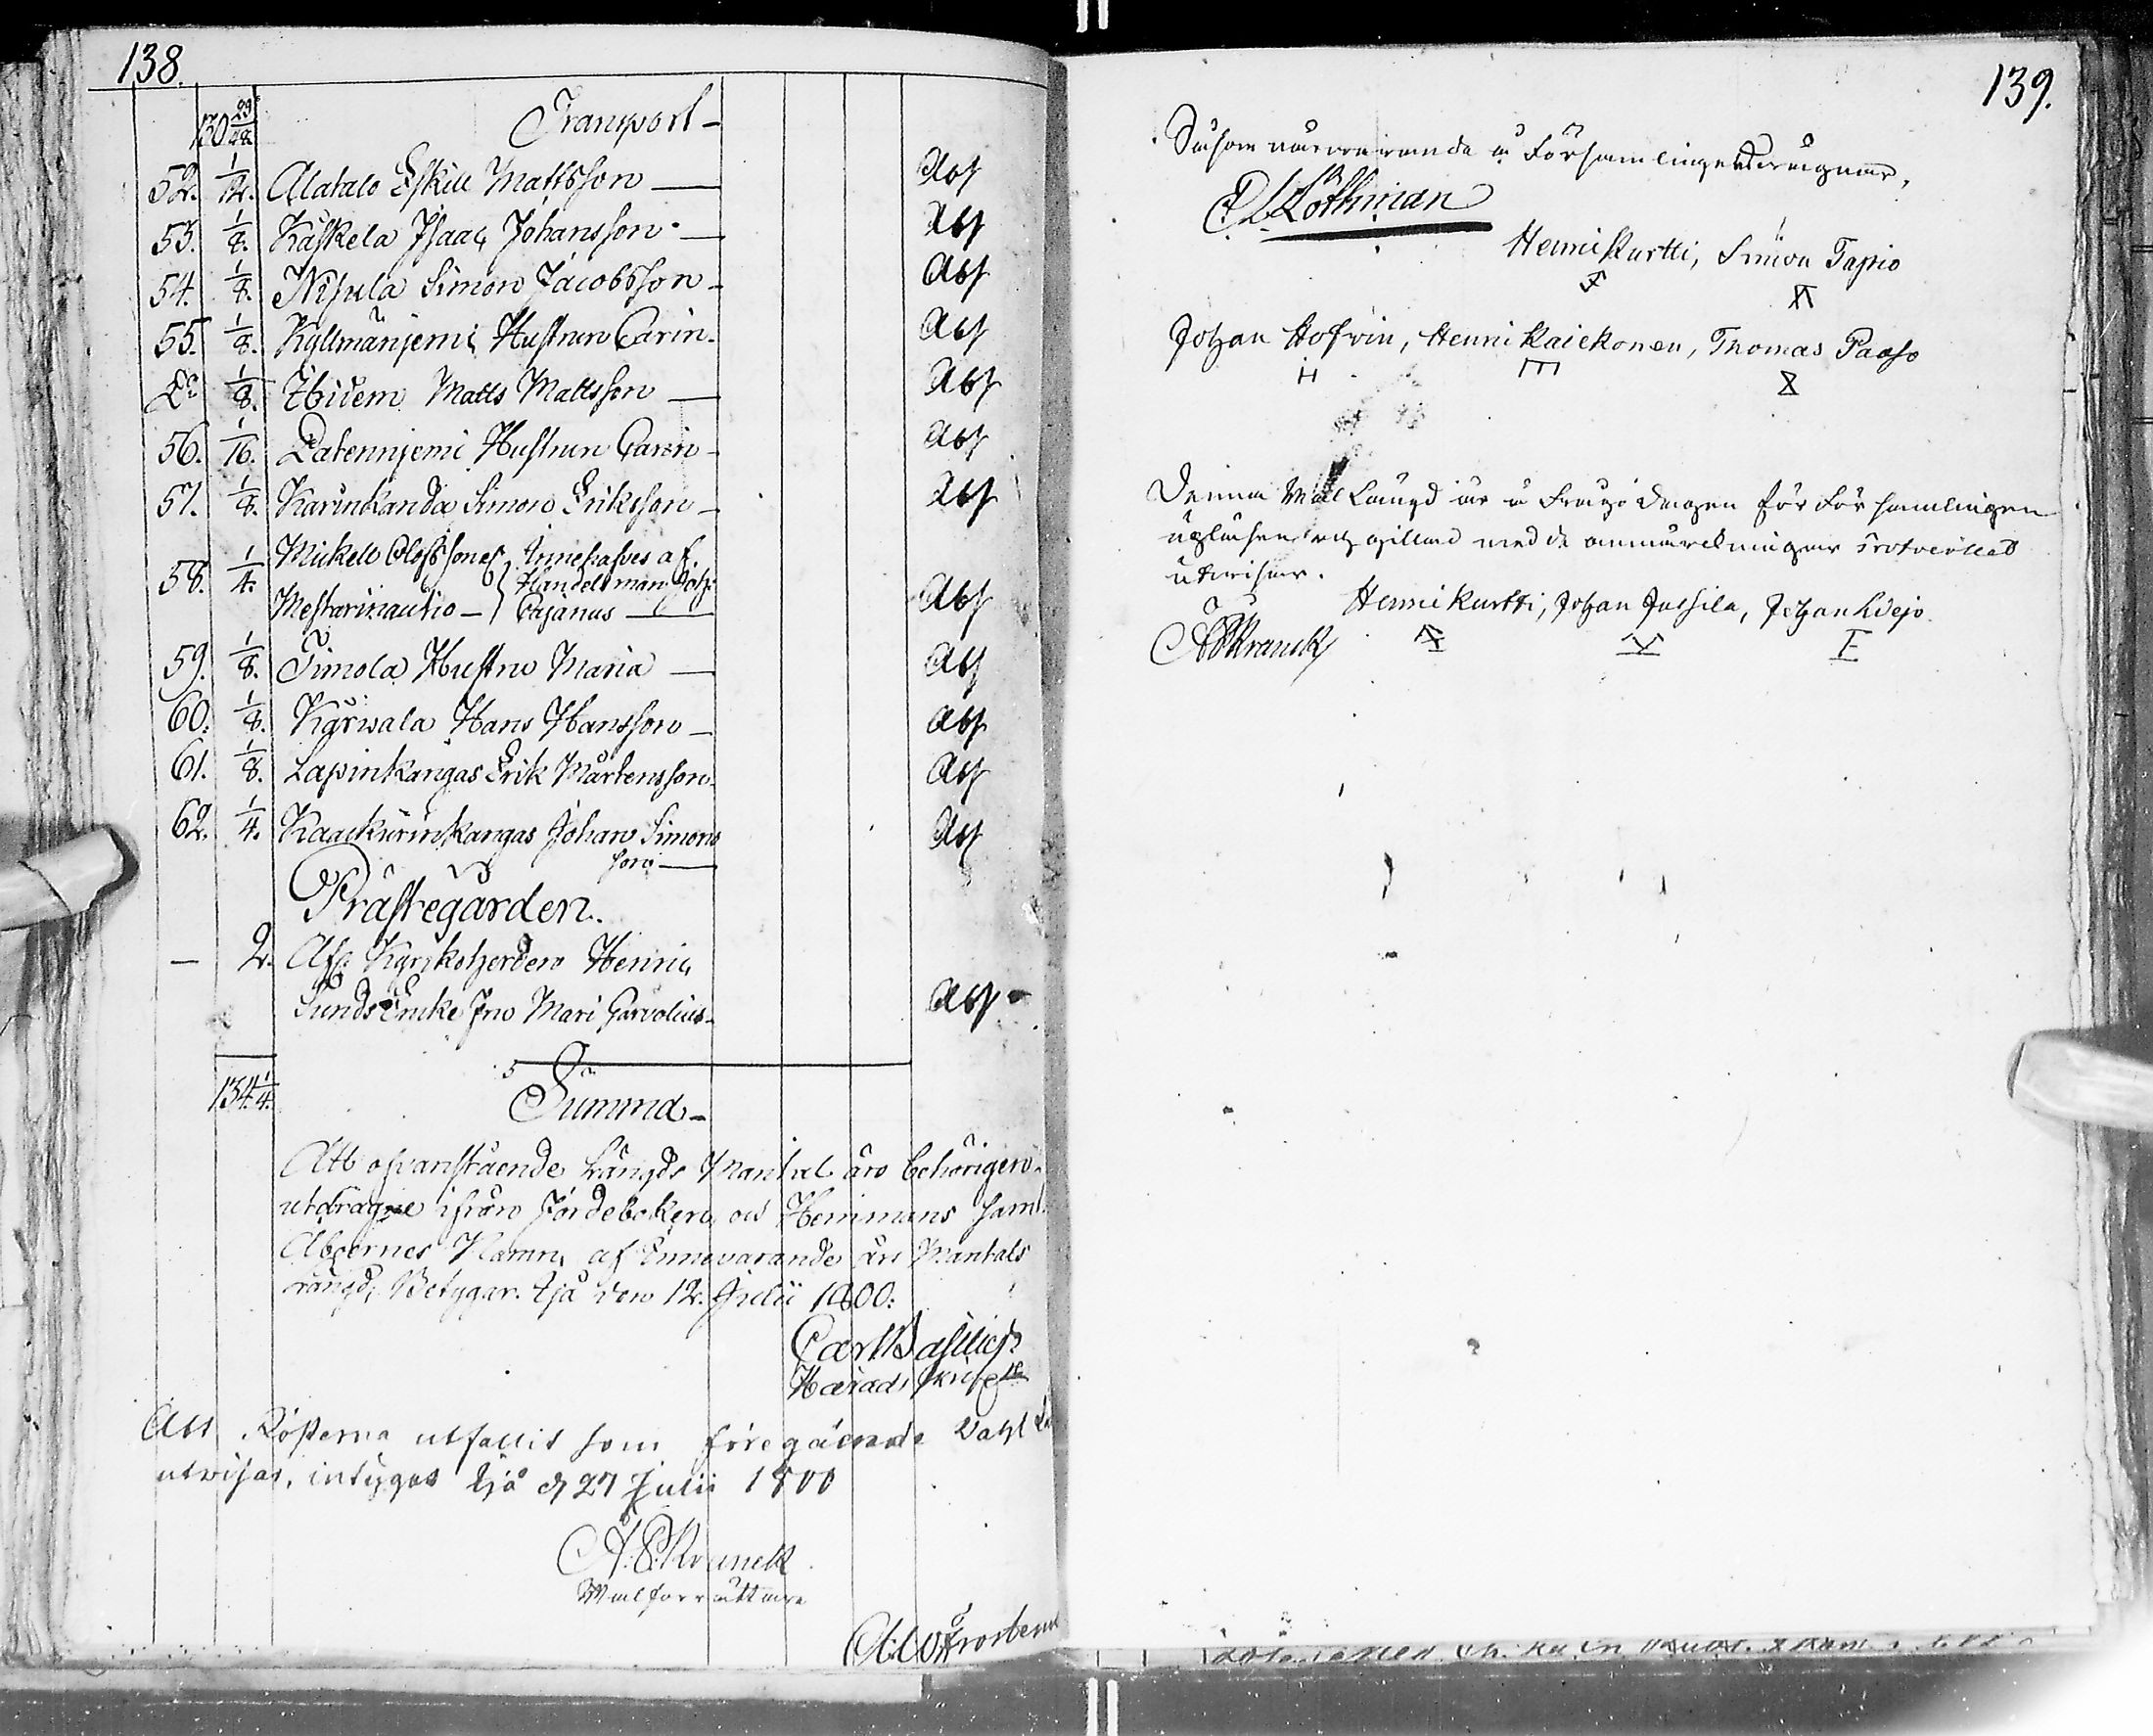 138.
130 29/48 Transport –
52. 1/12. Alatalo Eskill Mattsson — Abs
53. 1/8. Käskela Isaac Johansson — Abs
54. 1/8. Nisula Simon Jacobsson – Abs
55. 1/8. Kyllmänjemi Hustrun Carin – Abs
Do 1/8. Ibidem Matts Mattsson — Abs
56. 1/16. Latennjemi Hustrun Carin – Abs
57. 1/8. Karinkanda Simon Eriksson – Abs
58. 1/4. Mickell Olofssons Innehafves af
Handelsman Joh:
Mestarinautio – Cajanus — Abs
59. 1/8. Timola Hustru Maria — Abs
60. 1/8. Kärwala Hans Hansson – Abs
61. 1/8. Lapinkangas Erik Mårtensson – Abs
62. 1/4. Kaackurinkangas Johan Simons
son — Abs
Prästegården.
— 2. Afl. Kyrkoherden Henric
Sunds Enke Fru Mari Carolius – Abs
134 1/4. Summa –
Att ofvanstående Längds Mantal äro behörigen
utdragne ifrån Jordeboken, och Hemmans samt
Åboernes Namn, af Innevarande års Mantals
Längd, Betygar. Ijå den 12. Julii 1800.
Carl
Härads skrifvare
Att Rösterna utfallit som föregående Vahl
utvisar, intygas Ijå d 27 Julii 1800
A. P. Kranck
Walförrättare
139.
Såsom närvarande å Församlingens vägnar,
Lothman
Henric Kurtti, Simon Tapio
Johan Hofvin, Henric Kaickonen, Thomas Paaso
Denna Wal Längd är i Fredags för Församlingen
upläsen och gillad med de anmärkningar Protocollet
utvisar.
Henric Kurtti, Johan Jussila, Johan Liejo
A P Kranck